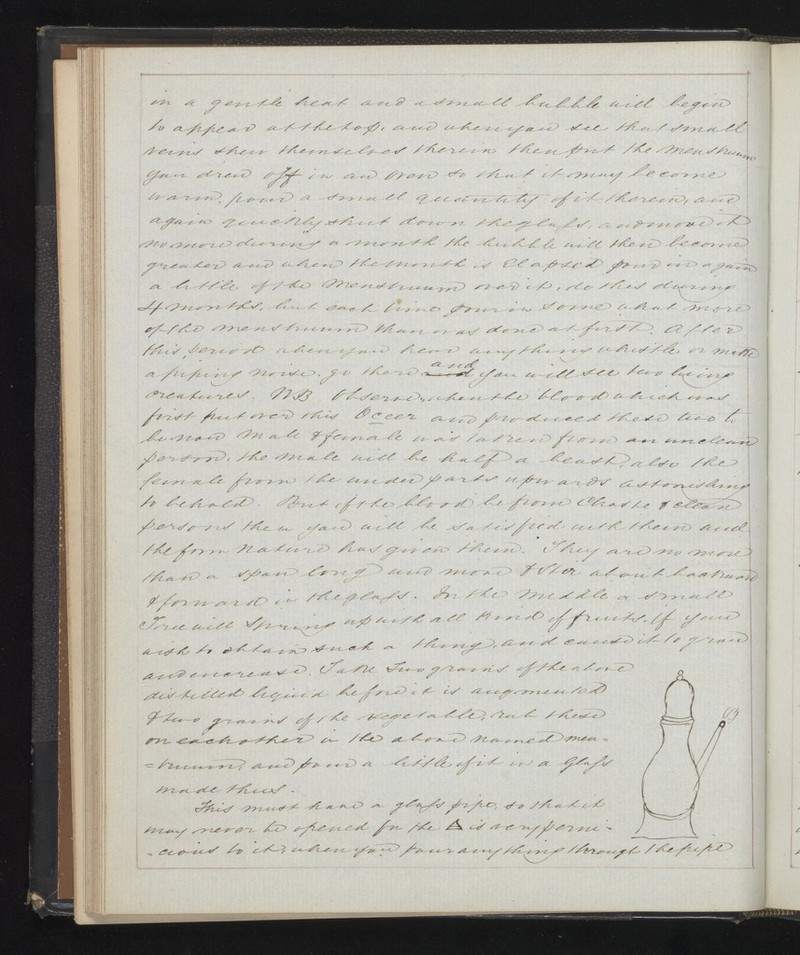 in a gentle heat and a small bubble will begin
to appear at the top, and when you see that small
veins shew themselves therein then put the menstruum
you drew off in an oven so that it may become
warm, pour a small quantity of it therein, and
again quickly shut down the glass, and move it
no more during a month the bubble will then become
greater and when the month is elapsed pour in again
a little of the menstruum over it, do this during
4 months, but each time pour in some what more
of the menstruum than was done at first. After
this period when you hear any thing whistle or make
a piping noise, go there and you will see two living
creatures. NB Observe, when the blood which was
first put over this and produced these two to
be now male & female was taken from an unclean
person, the male will be half a beast, also the
female from the under parts upwards astonishing
to behold. But if the blood be from Chaste & clean
persons then you will be satisfied with them and
the form nature has given them. They are no more
than a span long and move & stir about backward
& forward in the glass. In the middle a small
Tree will Spring up with all kind of fruits. If you
wish to obtain such a thing, and cause it to grow
and increase. Take Two grains of the above
distilled liquid before it is augmented
& two grains of the vegetable, rub these
on each other in the above named men-
=struum, and pour a little of it in a glass
made thus.
This must have a glass pipe, so that it
may never be opened for the 🜁 is very perni-
-cious to it; when you pour any thing through the pipe